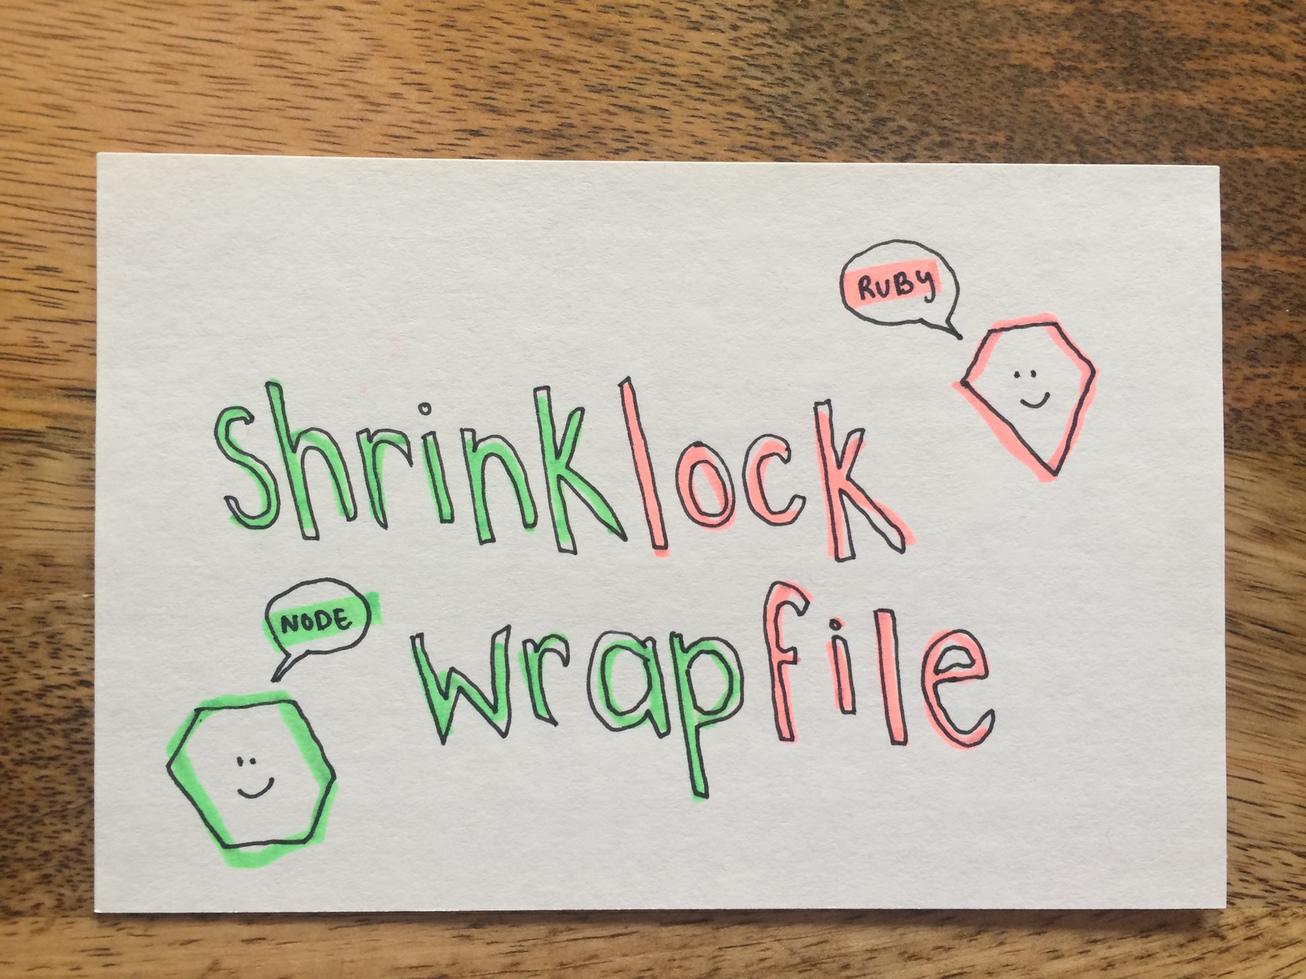 RUBY
shrinklock
NODE
wrapfile